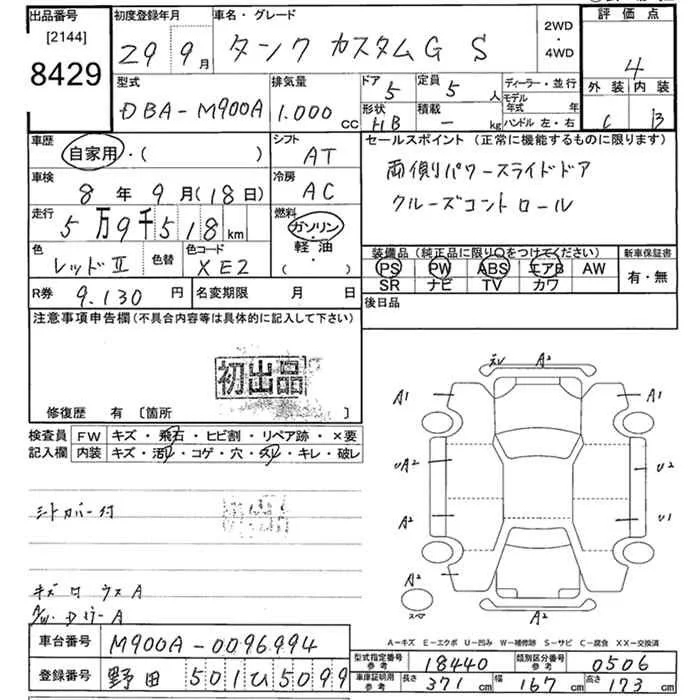 出品番号 初度登録年月 車名・グレード 2WD・4WD 評価点
[2144]
8429 29 9月 タンク カスタムG S 4
型式 排気量 ドア 定員 ディーラー・並行 外装 内装
DBA-M900A 1.000cc 5 5人 モデル年式 年 C B
形状 積載 ハンドル 左・右
HB - kg
車歴 シフト セールスポイント (正常に機能するものに限ります)
自家用・( ) AT 両側パワースライドドア
車検 冷房 クルーズコントロール
8年9月(18日) AC
走行 燃料
5万9千518km ガソリン・軽油・( )
色 色替 色コード 装備品(純正品に限り○をつけてください) 新車保証書
レッドII XE2 PS PW ABS エアB AW 有・無
SR ナビ TV カワ
R券 9.130円 名変期限 月 日 後日品
注意事項申告欄(不具合内容等は具体的に記入して下さい)
初出品
修復歴 有 〔箇所 〕
検査員 FW キズ・飛石・ヒビ割・リペア跡・×要
記入欄 内装 キズ・汚レ・コゲ・穴・スレ・キレ・破レ
A2
A1 A1
UA2 U2
A2 U1
A2
スペ A2
シートカバー付
A-キズ E-エクボ U-凹み W-補修跡 S-サビ C-腐食 XX-交換済
車台番号 M900A-0096994
型式指定番号参考 18440 類別区分番号参考 0506
登録番号 野田 501 ひ 5099
車庫証明用参考 長さ 371cm 幅 167cm 高さ 173cm